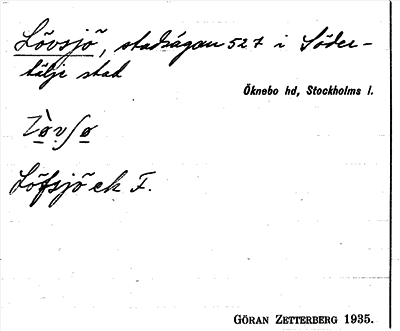 Lövsjö, stadsägan 527 i Söder-
tälje stad
Öknebo hd, Stockholms l.
Löfsjö ek F.
GÖRAN ZETTERBERG 1935.